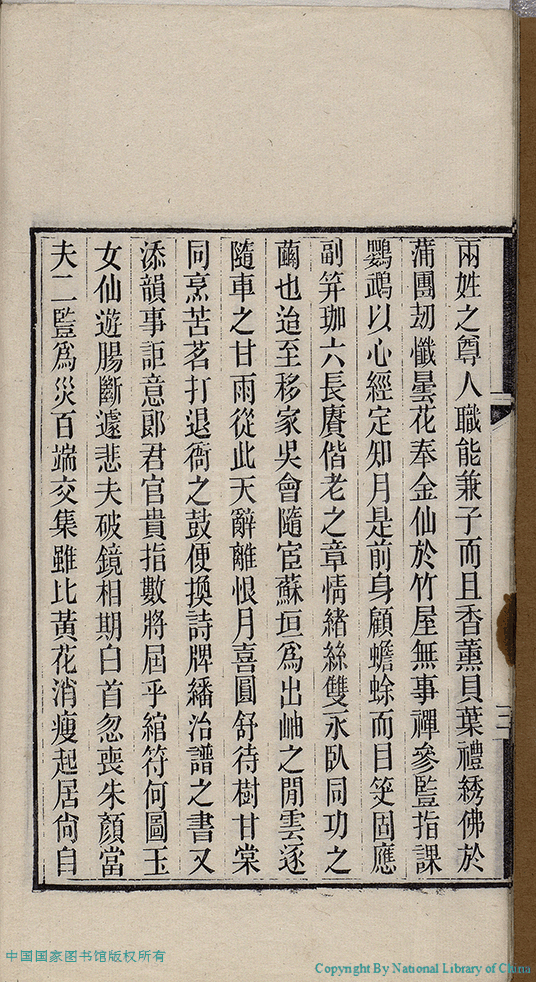 兩姓之尊人職能兼子而且香薰貝葉禮綉佛於
蒲團刼懺曇花奉金仙於竹屋無事禪參豎指課
鸚鵡以心經定知月是前身顧蟾蜍而目笑固應
副笄珈六長賡偕老之章情緒絲雙永臥同功之
繭也迨至移家吳會隨宦蘇垣爲出岫之閒雲逐
隨車之甘雨從此天辭離恨月喜圓舒待樹甘棠
同烹苦茗打退衙之鼓便換詩牌繙治譜之書又
添韻事詎意郎君官貴指數將屆乎綰符何圖玉
女仙遊腸斷遽悲夫破鏡相期白首忽喪朱顏當
夫二豎爲災百端交集雖比黃花消瘦起居尙自
三
中国国家图书馆版权所有
Copyright By National Library of China